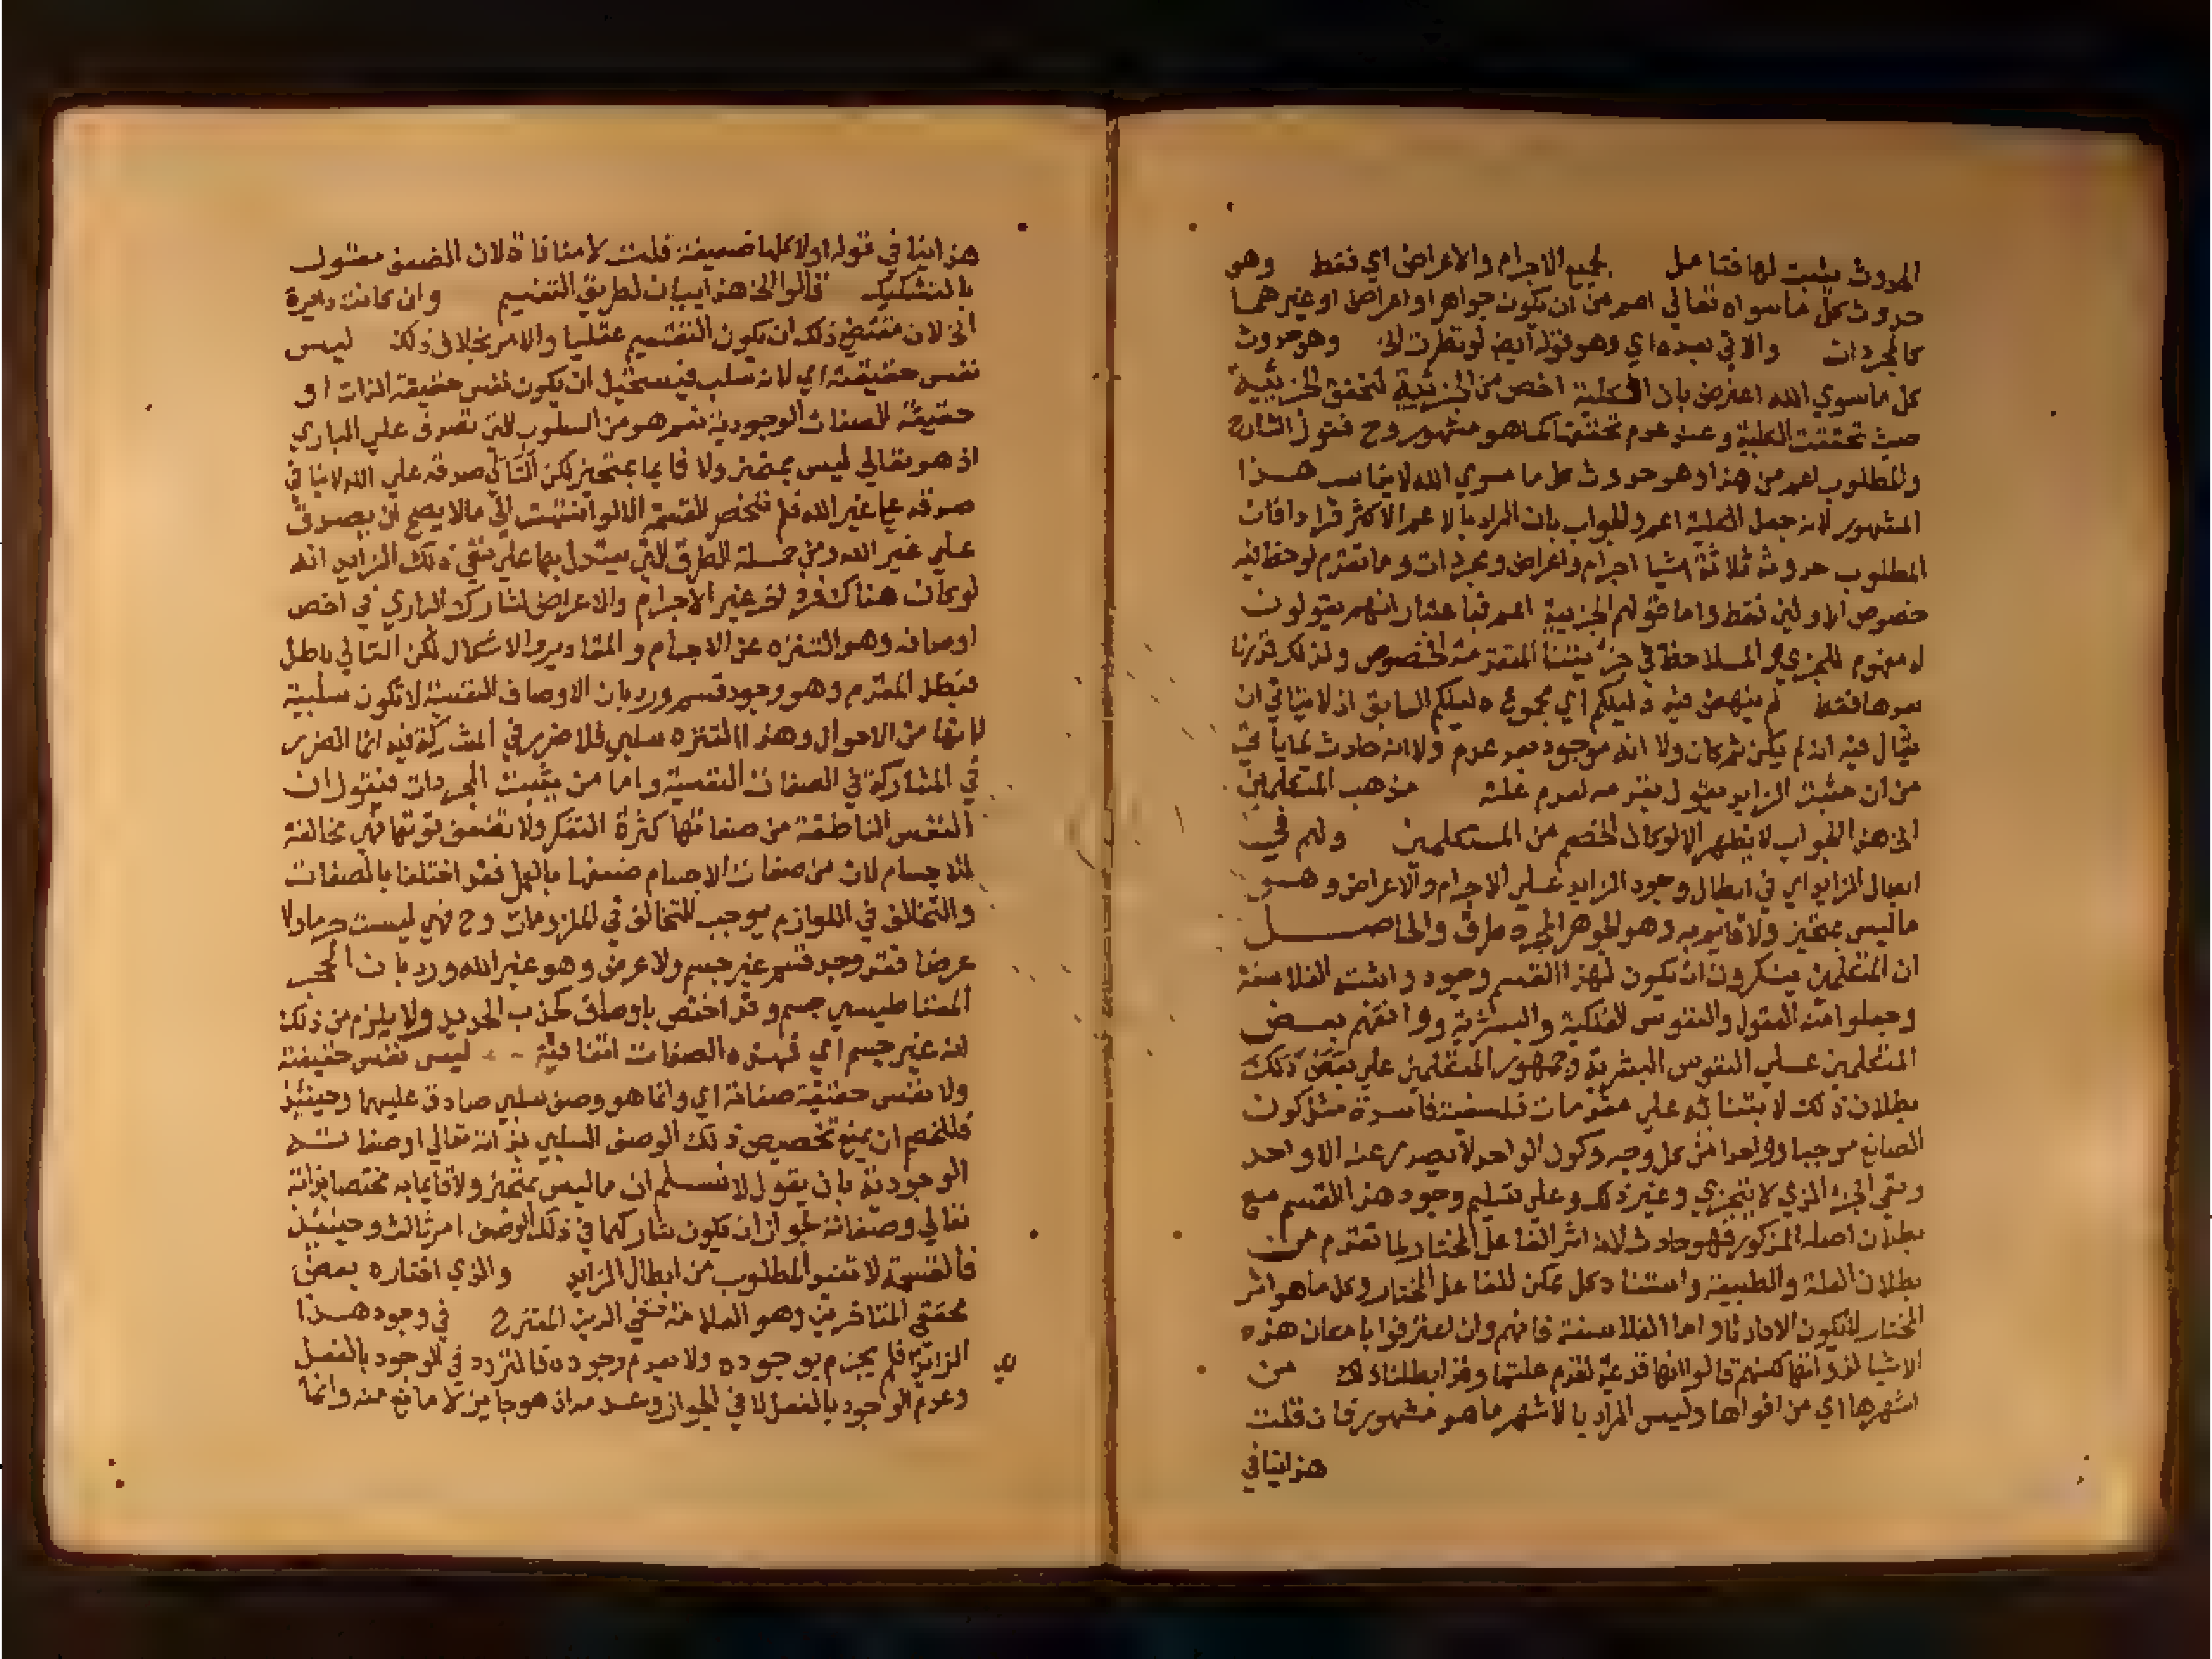 الحدوث يثبت لها فتامل لجميع الاجرام والاعراض اي فقط وهو
حدوث كل ما سواه تعالي اعم من ان يكون جواهر او اعراض او غيرهما
كالمجردات والاتي بعده اي وهو قوله ايض لو نظرت الخ وهو حدوث
كل ما سوي الله اعترض بان الكلية اخص من الجزئية لتحقق الجزئية
حيث تحققت الكلية وعند عدم تحققها كما هو مشهور وح فقول الشارح
والمطلوب اعم من هذا وهو حدوث كل ما سوي الله لا يناسب هذا
المشهور لانه جعل الكلية اعم والجواب بان المراد بالاعم الاكثر افرادا فان
المطلوب حدوث ثلاثة اشيا اجرام واعراض ومجردات وما تقدم لوحظ فيه
خصوص الاولين فقط واما قولهم الجزيية اعم فباعتبار انهم يقولون
له مفهوم الجزي الملاحظ في المتقدمة الخصوص ولذلك قررنا
بعدها فقط لم ينهض فيه دليلكم اي مجموع دليلكم السابق اذ لا ينافي ان
يقال فيه انه لم يكن ثم كان ولا انه موجود بعد عدم ولا انه حادث لما ياتي
من ان مثبت الزايد يقول بقدمه لقدم علته مذهب المتكلمين
الخ هذا الجواب لا يظهر الا لو كان الخصم من المتكلمين ولهم في
ابطال الزايد اي في ابطال وجود الزايد علي الاجرام والاعراض وهو
ما ليس بمتحيز ولا قايم به وهو الجوهر المجرد طرق والحاصل
ان المتكلمين ينكرون ان يكون لهذا القسم وجود واثبته الفلاسفة
وجعلوا منه العقول والنفوس الفلكية والبشرية ووافقهم بعض
المتكلمين علي النفوس البشرية وجمهور المتكلمين علي نفي ذلك
بطلان ذلك لابتنائه علي مقدمات فلسفية فاسدة مثل كون
الصانع موجبا وواحدا من كل وجه وكون الواحد لا يصدر عنه الا واحد
ونفي الجزء الذي لا يتجزي وغير ذلك وعلي تسليم وجود هذا القسم مع
بطلان اصله المذكور فهو حادث لانه اثر الفاعل المختار لما تقدم من
بطلان العلة والطبيعة واستناد كل ممكن للفاعل المختار وكل ما هو اثر
المختار لا يكون الا حادثا واما الفلاسفة فانهم وان اعترفوا بامكان هذه
الاشيا لذواتها لكنهم قالوا انها قديمة لقدم علتها وقد ابطلنا ذلك من
اشهرها اي من اقواها وليس المراد بالاشهر ما هو مشهور فان قلت
هذا ينافي
هذا ينافي قوله اولا كلها ضعيفة قلت لا منافاة لان الضعف مقول
بالتشكيك قالوا الخ هذا بيان لطريق التقسيم وان كانت دايرة
الخ لان مقتضي ذلك ان يكون التقسيم عقليا والامر بخلاف ذلك ليس
نفس حقيقته اي لانه سلب فيستحيل ان يكون نفس حقيقة الذات او
حقيقة الصفات الوجودية نعم هو من السلوب التي تصدق علي الباري
اذ هو تعالي ليس بمتحيز ولا قايما بمتحيز لكن الثاني صدقه علي الله لا ينافي
صدقه علي غير الله فلم تختص القسمة الا لو انتهت الي ما لا يصح ان يصدق
علي غير الله ومن جملة الطرق التي يستدل بها علي نفي ذلك الزايد انه
لو كان هناك فرد اخر غير الاجرام والاعراض لشارك الباري في اخص
اوصافه وهو التنزه عن الاجسام والمقادير والاشكال لكن التالي باطل
فبطل المقدم وهو وجود قسم ورد بان الاوصاف النفسية لا تكون سلبية
لانها من الاحوال وهذا التنزه سلبي فلا ضرر في المشاركة فيه انما الضرر
في المشاركة في الصفات النفسية واما من يثبت المجردات فيقول ان
النفس الناطقة من صفاتها كثرة التفكر ولا تضعف قوتها فهي مخالفة
للاجسام لان من صفات الاجسام ضعفها بالعمل فقد اختلفا بالصفات
والتخالف في اللوازم يوجب التخالف في الملزومات وح فهي ليست جرما ولا
عرضا فقد وجد قسم غير جسم ولا عرض وهو غير الله ورد بان الحجر
المغناطيسي جسم وقد اختص باوصاف كجذب الحديد ولا يلزم من ذلك
انه غير جسم اي فهذه الصفات اتفاقية ليس نفس حقيقته
ولا نفس حقيقة صفاته اي وانما هو وصف سلبي صادق عليهما وحينئذ
فللخصم ان يمنع تخصيص ذلك الوصف السلبي بذاته تعالي او صفاته
الوجودية بان يقول لا نسلم ان ما ليس بمتحيز ولا قايما به مختصا بذاته
تعالي وصفاته لجواز ان يكون شاركهما في ذلك الوصف امر ثالث وحينئذ
فالقسمة لا تفيد المطلوب من ابطال الزايد والذي اختاره بعض
محققي المتاخرين وهو العلامة تقي الدين المقترح في وجود هذا
الزايد فلم يجزم بوجوده ولا بعدم وجوده فالتردد في الوجود بالفعل
وعدم الوجود بالفعل لا في الجواز وعدمه اذ هو جايز لا مانع منه وانما